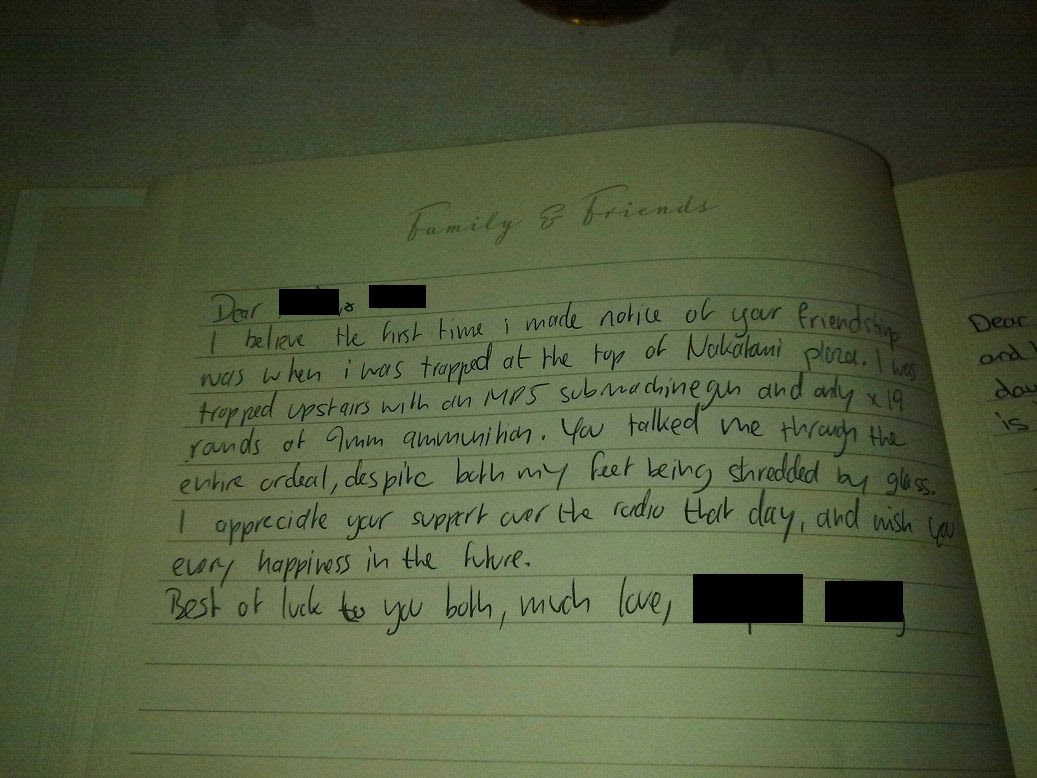 Family & Friends
Dear &
I believe the first time i made notice of your friendship
was when i was trapped at the top of Nakatami plaza. I was
trapped upstairs with an MP5 submachinegun and only x 19
rounds of 9mm ammunition. You talked me through the
entire ordeal, despite both my feet being shredded by glass.
I appreciate your support over the radio that day, and wish you
every happiness in the future.
Best of luck to you both, much love,
Dear
and
day
is